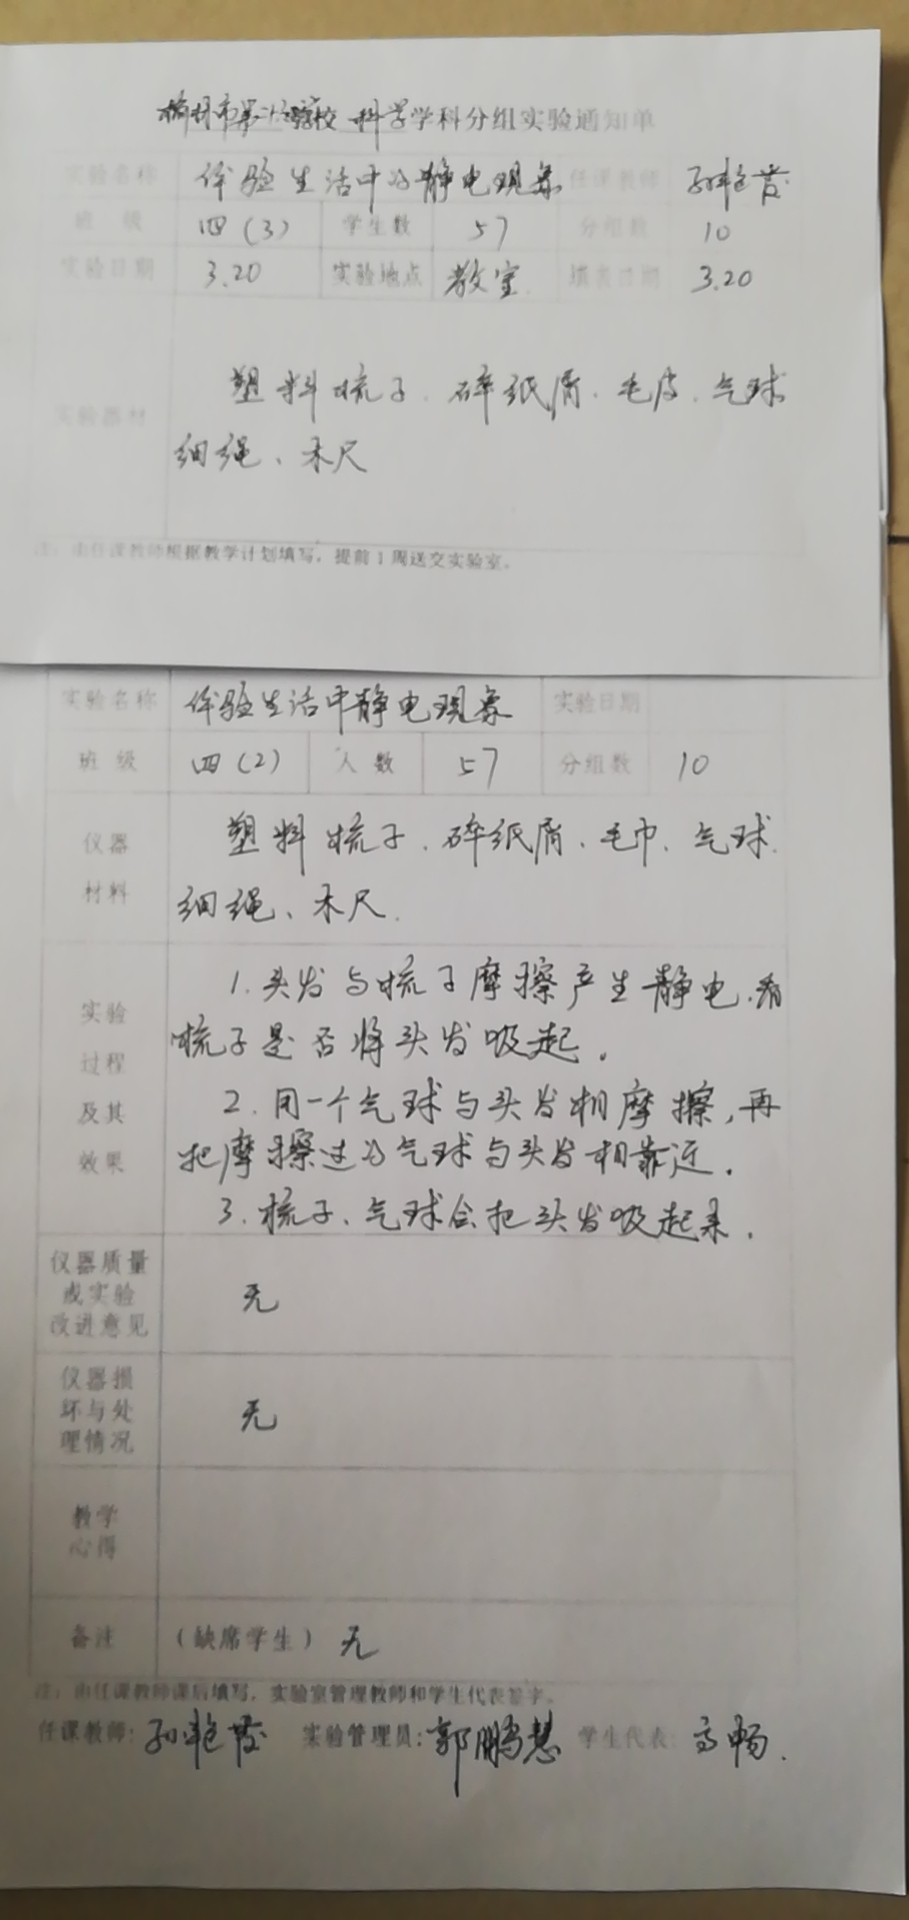 榆林市第十二学校 科学学科分组实验通知单
实验名称 体验生活中的静电现象 任课教师 孙艳芳
班 级 四(3) 学生数 57 分组数 10
实验日期 3.20 实验地点 教室 填表日期 3.20
塑料梳子.碎纸屑.毛皮.气球
实验器材
细绳、木尺
注:由任课教师根据教学计划填写,提前1周送交实验室。
实验名称 体验生活中静电现象 实验日期
班 级 四(2) 人 数 57 分组数 10
仪器 塑料梳子.碎纸屑.毛巾.气球.
材料 细绳、木尺.
1.头发与梳子摩擦产生静电.看
实验
梳子是否将头发吸起.
过程
2.用一个气球与头发相摩擦,再
及其
把摩擦过的气球与头发相靠近.
效果
3.梳子、气球会把头发吸起来.
仪器质量
或实验 无
改进意见
仪器损
坏与处 无
理情况
教学
心得
备注 (缺席学生) 无
注:由任课教师课后填写,实验室管理教师和学生代表签字。
任课教师: 孙艳芳 实验管理员: 郭鹏慧 学生代表: 高畅.